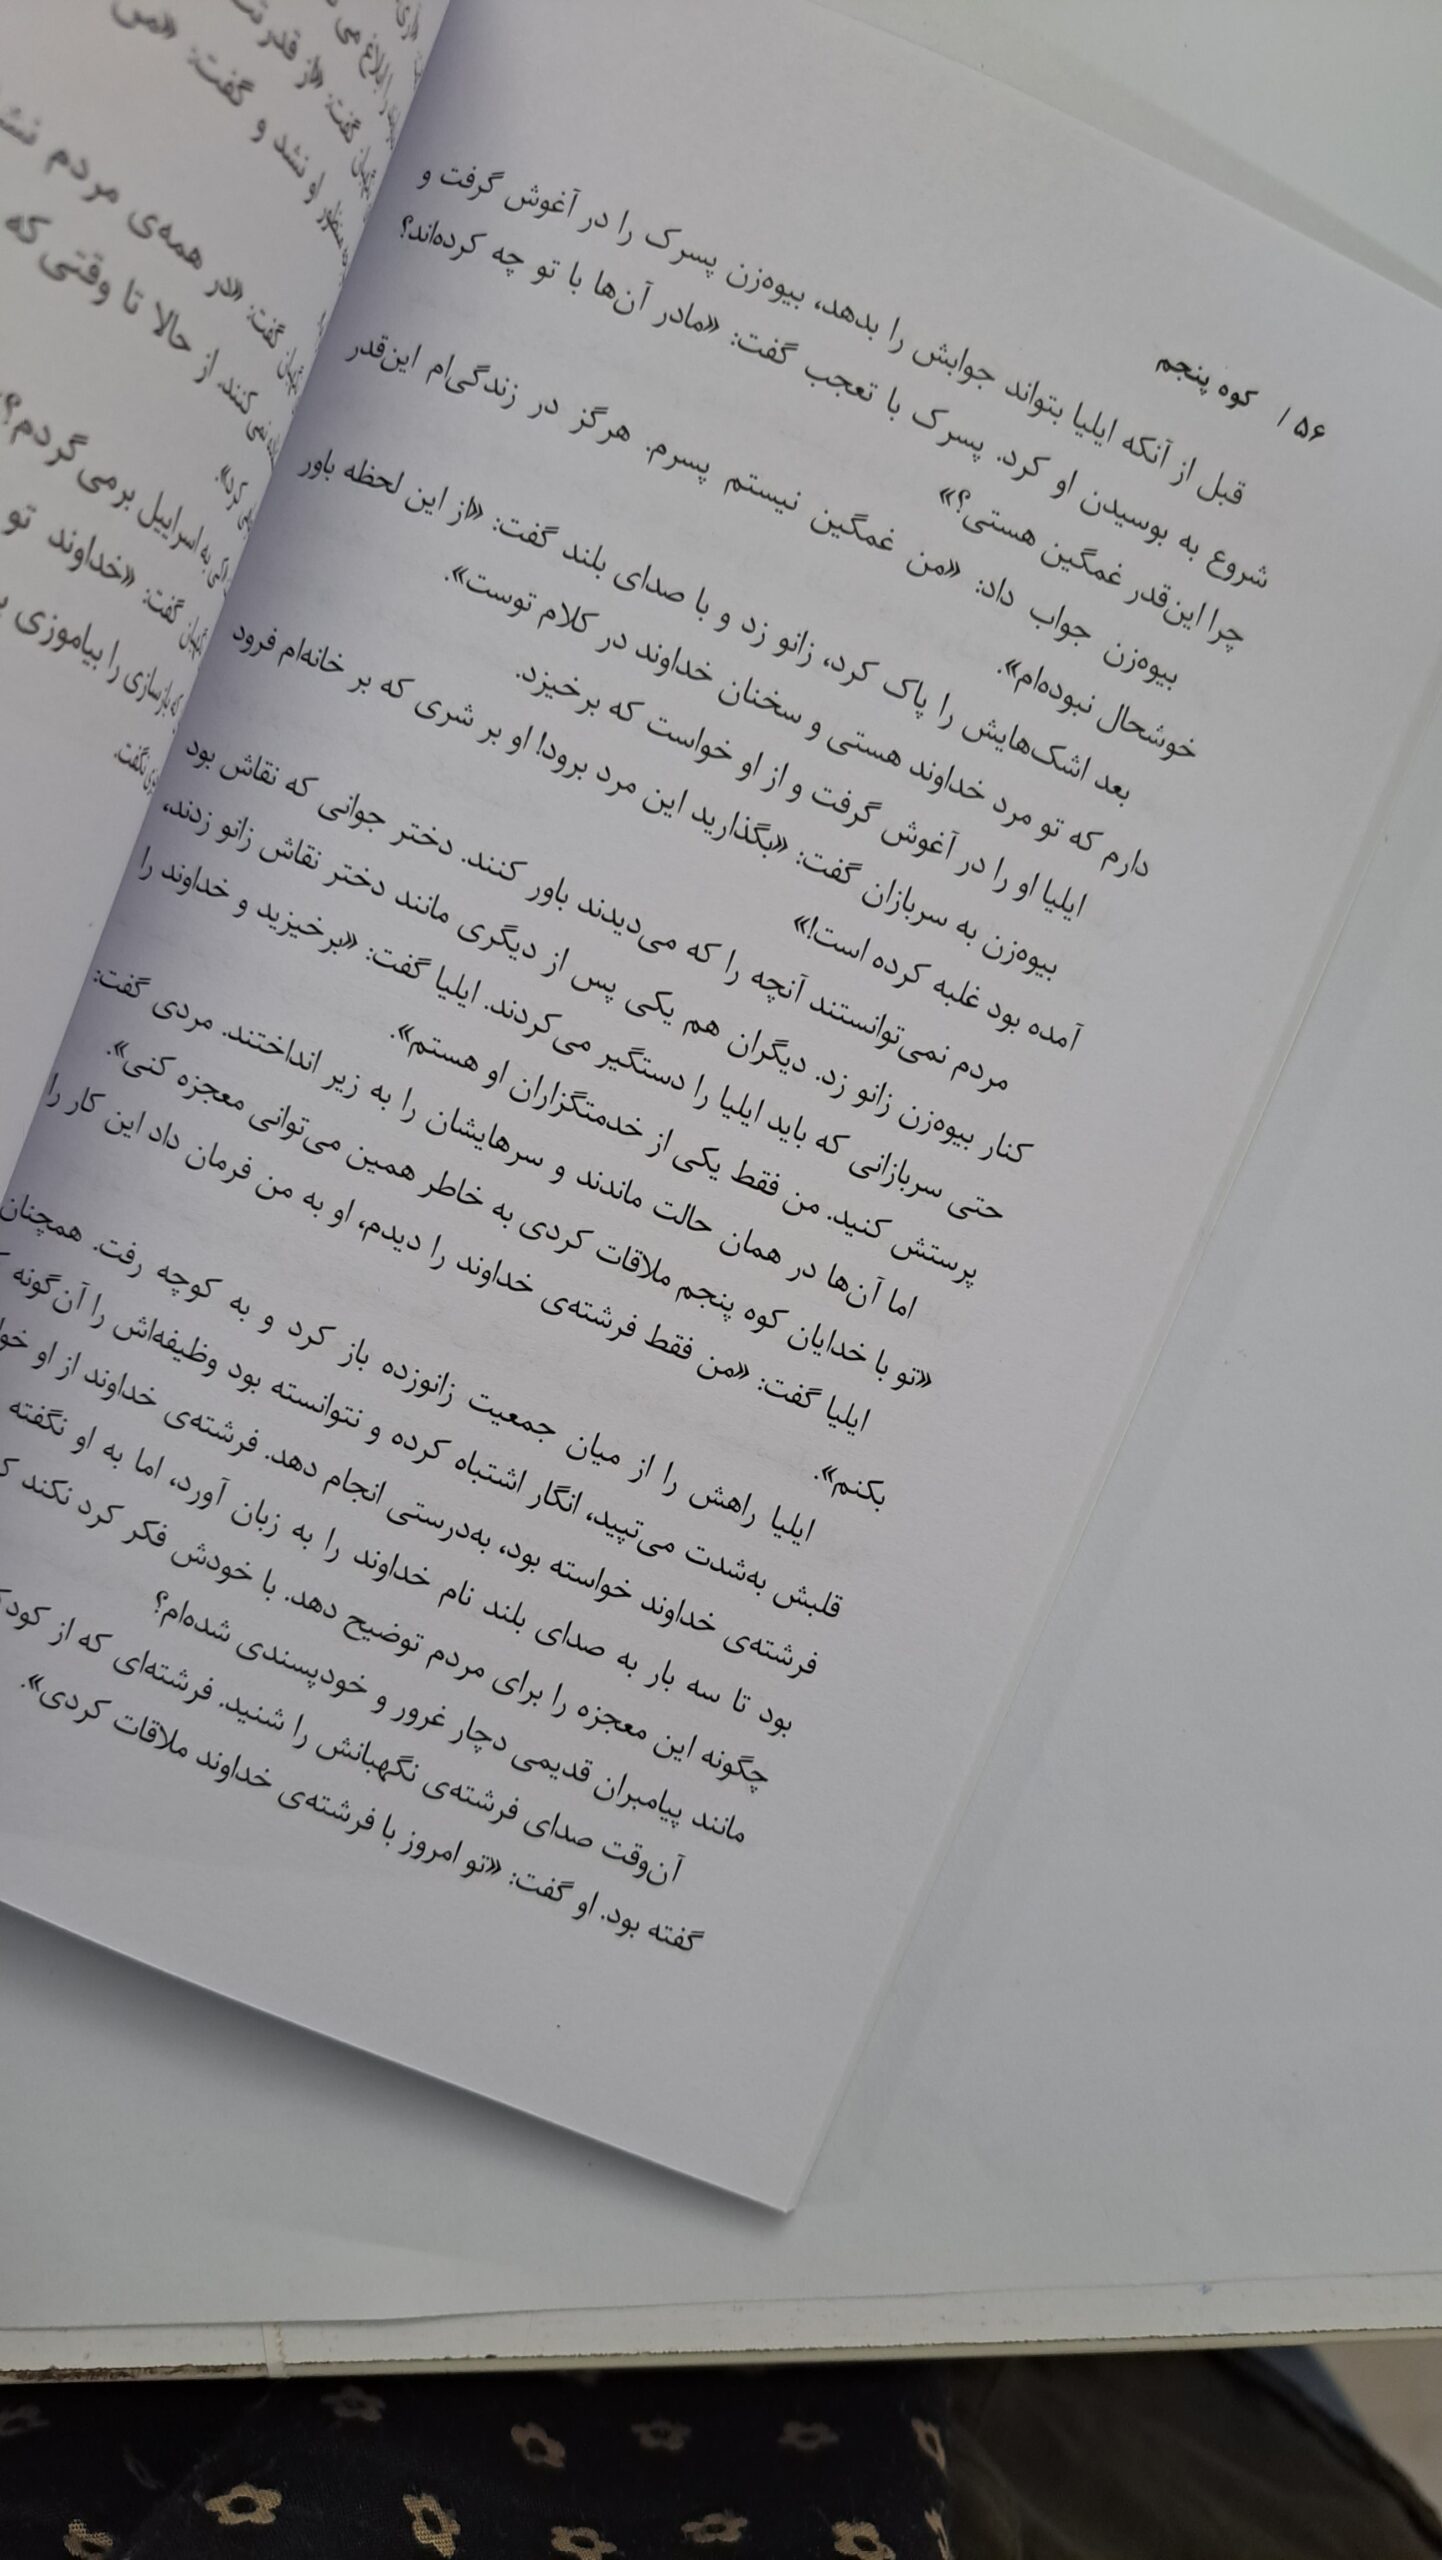 ۵۶ / کوه پنجم
قبل از آنکه ایلیا بتواند جوابش را بدهد، بیوه‌زن پسرک را در آغوش گرفت و
شروع به بوسیدن او کرد. پسرک با تعجب گفت: «مادر آن‌ها با تو چه کرده‌اند؟
چرا این‌قدر غمگین هستی؟»
بیوه‌زن جواب داد: «من غمگین نیستم پسرم. هرگز در زندگی‌ام این‌قدر
خوشحال نبوده‌ام».
بعد اشک‌هایش را پاک کرد، زانو زد و با صدای بلند گفت: «از این لحظه باور
دارم که تو مرد خداوند هستی و سخنان خداوند در کلام توست».
ایلیا او را در آغوش گرفت و از او خواست که برخیزد.
بیوه‌زن به سربازان گفت: «بگذارید این مرد برود! او بر شری که بر خانه‌ام فرود
آمده بود غلبه کرده است!»
مردم نمی‌توانستند آنچه را که می‌دیدند باور کنند. دختر جوانی که نقاش بود
کنار بیوه‌زن زانو زد. دیگران هم یکی پس از دیگری مانند دختر نقاش زانو زدند،
حتی سربازانی که باید ایلیا را دستگیر می‌کردند. ایلیا گفت: «برخیزید و خداوند را
پرستش کنید. من فقط یکی از خدمتگزاران او هستم».
اما آن‌ها در همان حالت ماندند و سرهایشان را به زیر انداختند. مردی گفت:
«تو با خدایان کوه پنجم ملاقات کردی به خاطر همین می‌توانی معجزه کنی».
ایلیا گفت: «من فقط فرشته‌ی خداوند را دیدم، او به من فرمان داد این کار را
بکنم».
ایلیا راهش را از میان جمعیت زانوزده باز کرد و به کوچه رفت. همچنان
قلبش به‌شدت می‌تپید، انگار اشتباه کرده و نتوانسته بود وظیفه‌اش را آن‌گونه
فرشته‌ی خداوند خواسته بود، به‌درستی انجام دهد. فرشته‌ی خداوند از او
بود تا سه بار به صدای بلند نام خداوند را به زبان آورد، اما به او نگفته
چگونه این معجزه را برای مردم توضیح دهد. با خودش فکر کرد نکند
مانند پیامبران قدیمی دچار غرور و خودپسندی شده‌ام؟
آن‌وقت صدای فرشته‌ی نگهبانش را شنید. فرشته‌ای که از
گفته بود. او گفت: «تو امروز با فرشته‌ی خداوند ملاقات کردی».
گفت: «از
او نشد و گفت: «من
گفت: «در همه‌ی مردم
نمی‌کنند. از حالا تا وقتی که
به اسراییل برمی‌گردم؟
گفت: «خداوند تو
بازسازی را بیاموزی